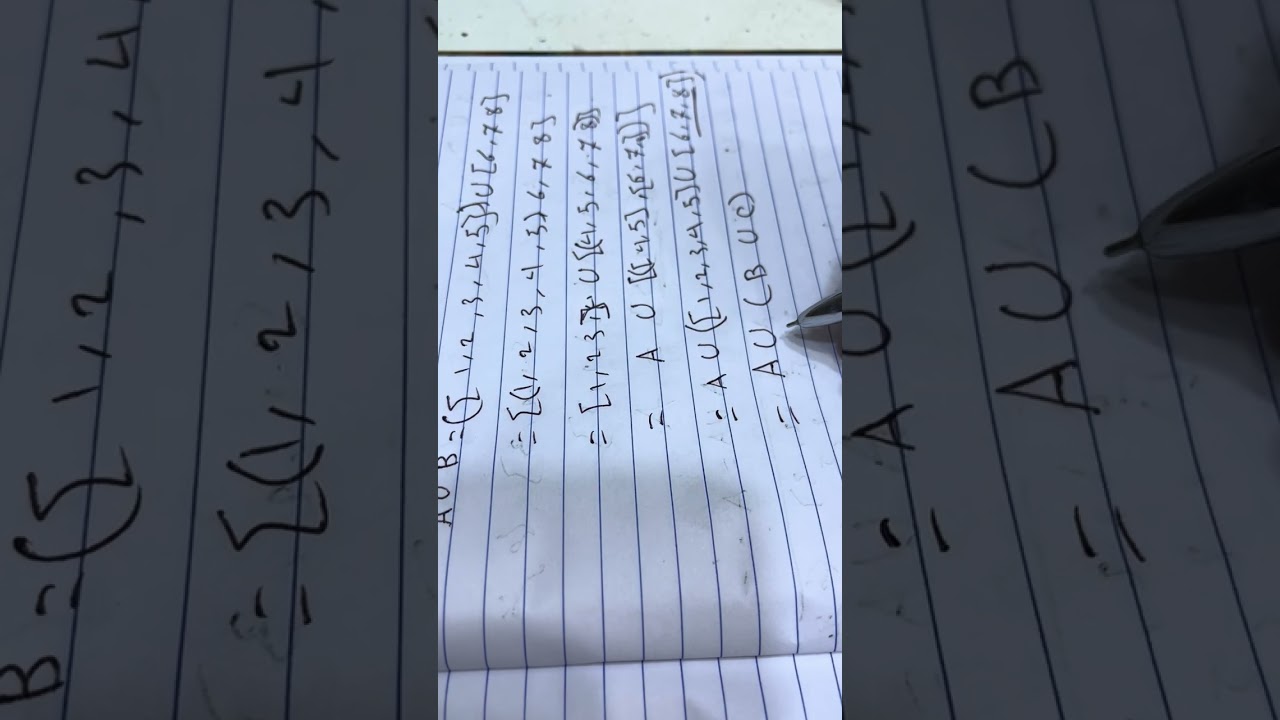 A U B = ({ 1, 2, 3, 4, 5}) U {6, 7 8}
= {(1, 2, 3, 4, 5) 6, 7 8}
= {1, 2 3} U {(4, 5, 6, 7 8)}
= A U {({4, 5}, {6, 7})}
= A U ({1, 2, 3, 4, 5} U {6, 7, 8})
= A U (B U C)